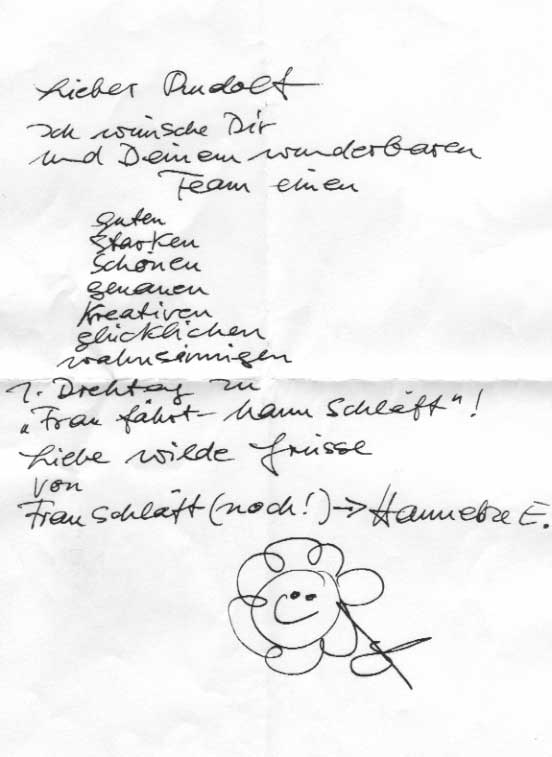 Lieber Rudolf
Ich wünsche Dir
und Deinem wunderbaren
Team einen
guten
starken
schönen
genauen
kreativen
glücklichen
wahnsinnigen
1. Drehtag zu
„Frau fährt – Mann schläft"!
Liebe wilde Grüsse
von
Frau schläft (noch!) → Hannelore E.